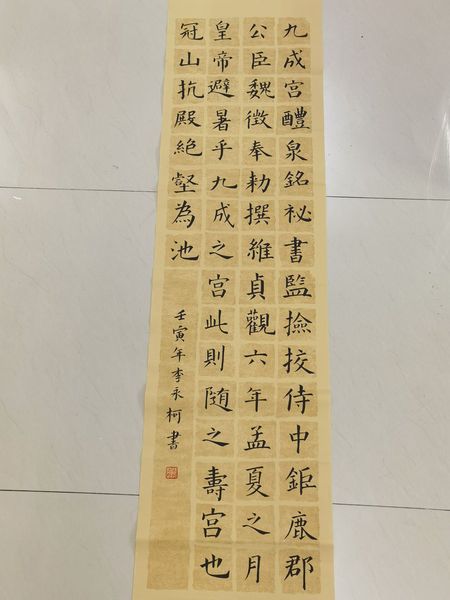 九成宫醴泉銘祕書監撿挍侍中鉅鹿郡
公臣魏徵奉勅撰維貞觀六年孟夏之月
皇帝避暑乎九成之宫此則随之壽宫也
冠山抗殿絶壑為池
壬寅年李永柯書